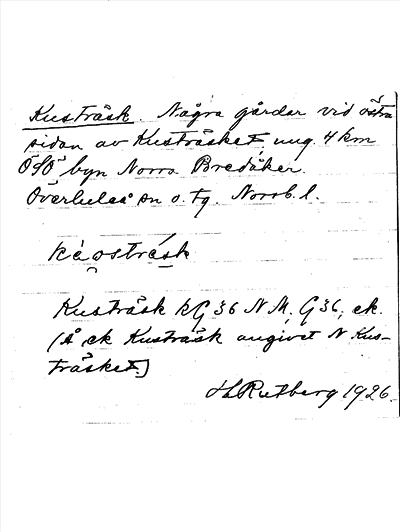 Kusträsk. Några gårdar vid östra
sidan av Kusträsket, ung. 4 km
OSO byn Norra Bredåker.
Överluleå sn o. tg. Norrb. l.
kèosträsk
Kusträsk kG 36 N M, G 36, ek.
(Å ek Kusträsk angivet N Kus-
träsket.)
HLRutberg 1926.